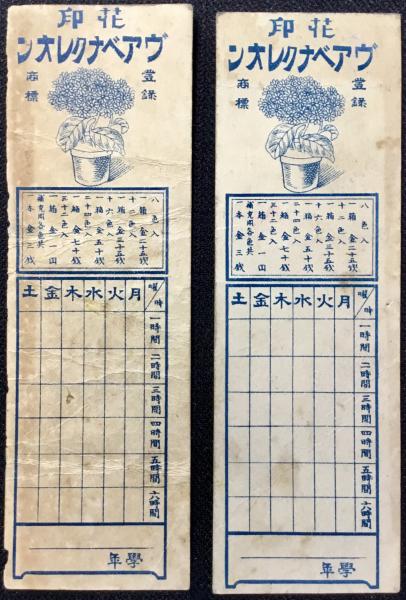 花印
ヴアベナクレオン
登錄
商標
八色入
一箱金二十五銭
十二色入
一箱金三十五銭
十六色入
一箱金五十銭
二十四色入
一箱金七十銭
三十二色入
一箱金一円
補充用各色共
一本金三銭
曜/時 月 火 水 木 金 土
一時間
二時間
三時間
四時間
五時間
六時間
學年
花印
ヴアベナクレオン
登錄
商標
八色入
一箱金二十五銭
十二色入
一箱金三十五銭
十六色入
一箱金五十銭
二十四色入
一箱金七十銭
三十二色入
一箱金一円
補充用各色共
一本金三銭
曜/時 月 火 水 木 金 土
一時間
二時間
三時間
四時間
五時間
六時間
學年